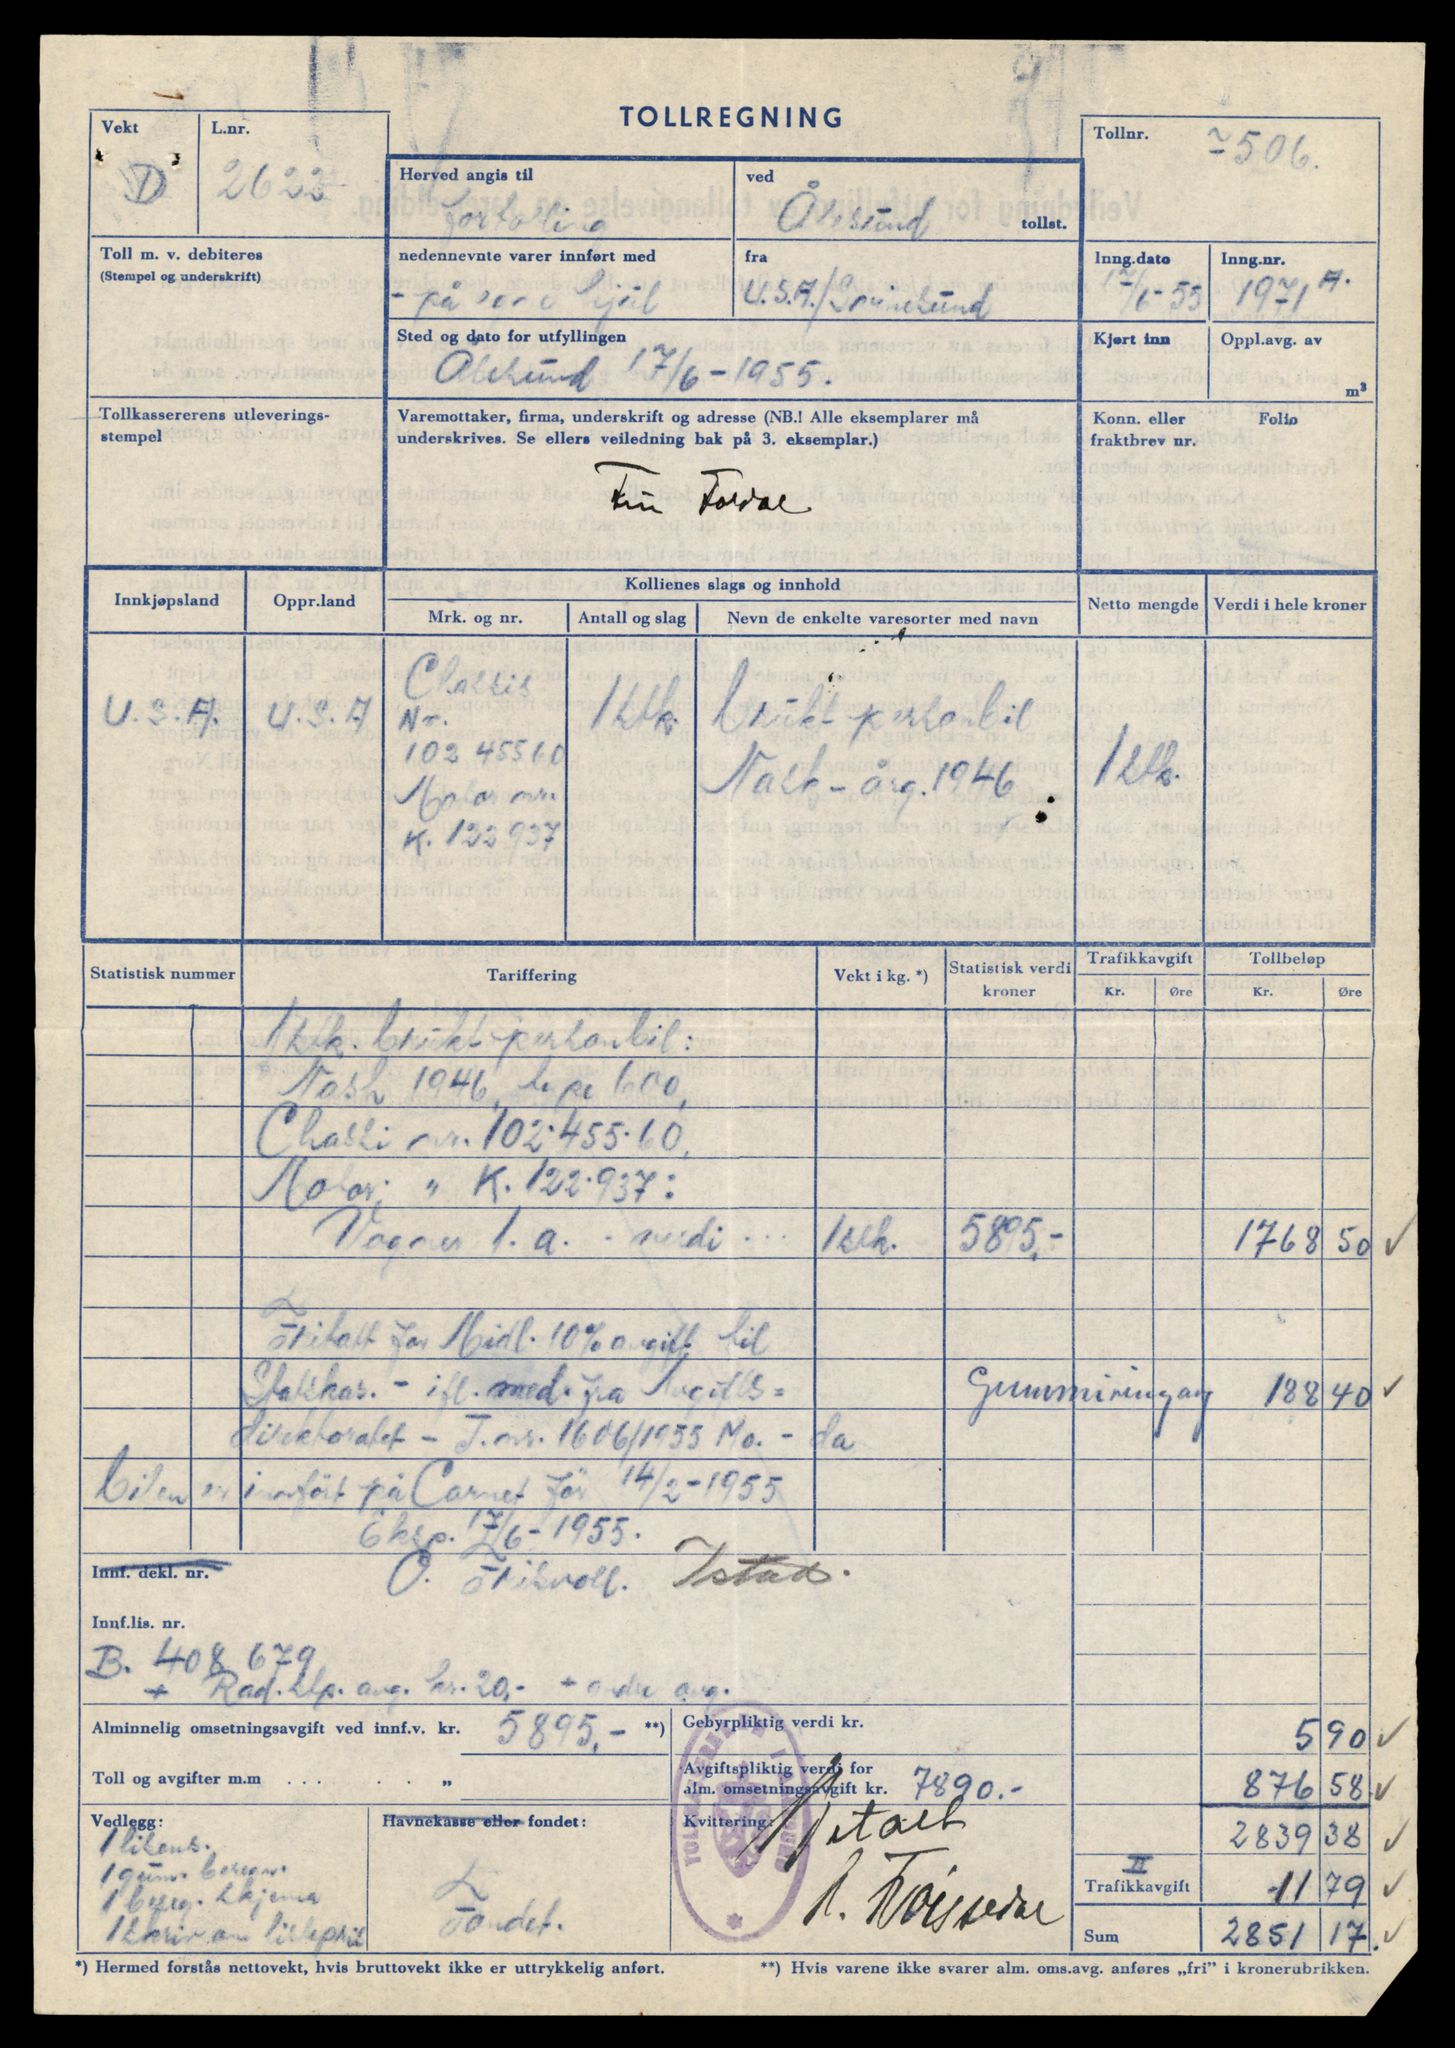 TOLLREGNING
Vekt
D
L.nr.
2622
Herved angis til
fortolling
ved
Ålesund
tollst.
Tollnr.
506.
Toll m. v. debiteres
(Stempel og underskrift)
nedennevnte varer innført med
- på egne hjul
fra
U.S.A./
Inng.dato
17/6-55
Inng.nr.
1971 A.
Sted og dato for utfyllingen
Ålesund 17/6-1955.
Kjørt inn
Oppl.avg. av
m³
Tollkassererens utleverings-
stempel
Varemottaker, firma, underskrift og adresse (NB.! Alle eksemplarer må
underskrives. Se ellers veiledning bak på 3. eksemplar.)
Konn. eller
fraktbrev nr.
Folio
Innkjøpsland
Oppr.land
Kollienes slags og innhold
Mrk. og nr.
Antall og slag
Nevn de enkelte varesorter med navn
Netto mengde
Verdi i hele kroner
U.S.A.
U.S.A
Chassis
Nr.
102 45560
Motor nr.
K. 122 937
1 stk.
brukt personbil
Nash - årg. 1946
1 stk.
Statistisk nummer
Tariffering
Vekt i kg. *)
Statistisk verdi
kroner
Trafikkavgift
Kr.
Øre
Tollbeløp
Kr.
Øre
1 stk. brukt personbil:
Nash 1946, type 600,
Chassi nr. 102·455·60,
Motor: " K. 122·937:
Vogner 1. a. - verdi ... 1 stk. 5895,- 1768 50 ✓
Fritatt for Midl. 10% avgift til
Statskas. - ifl. med. fra Avgifts= 188 40 ✓
direktoratet - J. nr. 1606/1955 Mo. - da
bilen er innført på Carnet før 14/2-1955
Eksp. 17/6-1955.
Innf. dekl. nr.
O.
Innf.lis. nr.
B. 408 679
+ Rad. stp. avg. kr. 20,- + andre avg.
Alminnelig omsetningsavgift ved innf.v. kr. 5895,- **)
Gebyrpliktig verdi kr.
5 90 ✓
Toll og avgifter m.m . . . . . . "
Avgiftspliktig verdi for
alm. omsetningsavgift kr. 7890.-
876 58 ✓
Vedlegg:
1 lisens.
1 gum. beregn.
1 bereg. skjema
Havnekasse eller fondet:
Fondet.
Kvittering:
2839 38 ✓
II
Trafikkavgift
11 79 ✓
Sum
2851 17. ✓
*) Hermed forstås nettovekt, hvis bruttovekt ikke er uttrykkelig anført.
**) Hvis varene ikke svarer alm. oms.avg. anføres „fri” i kronerubrikken.